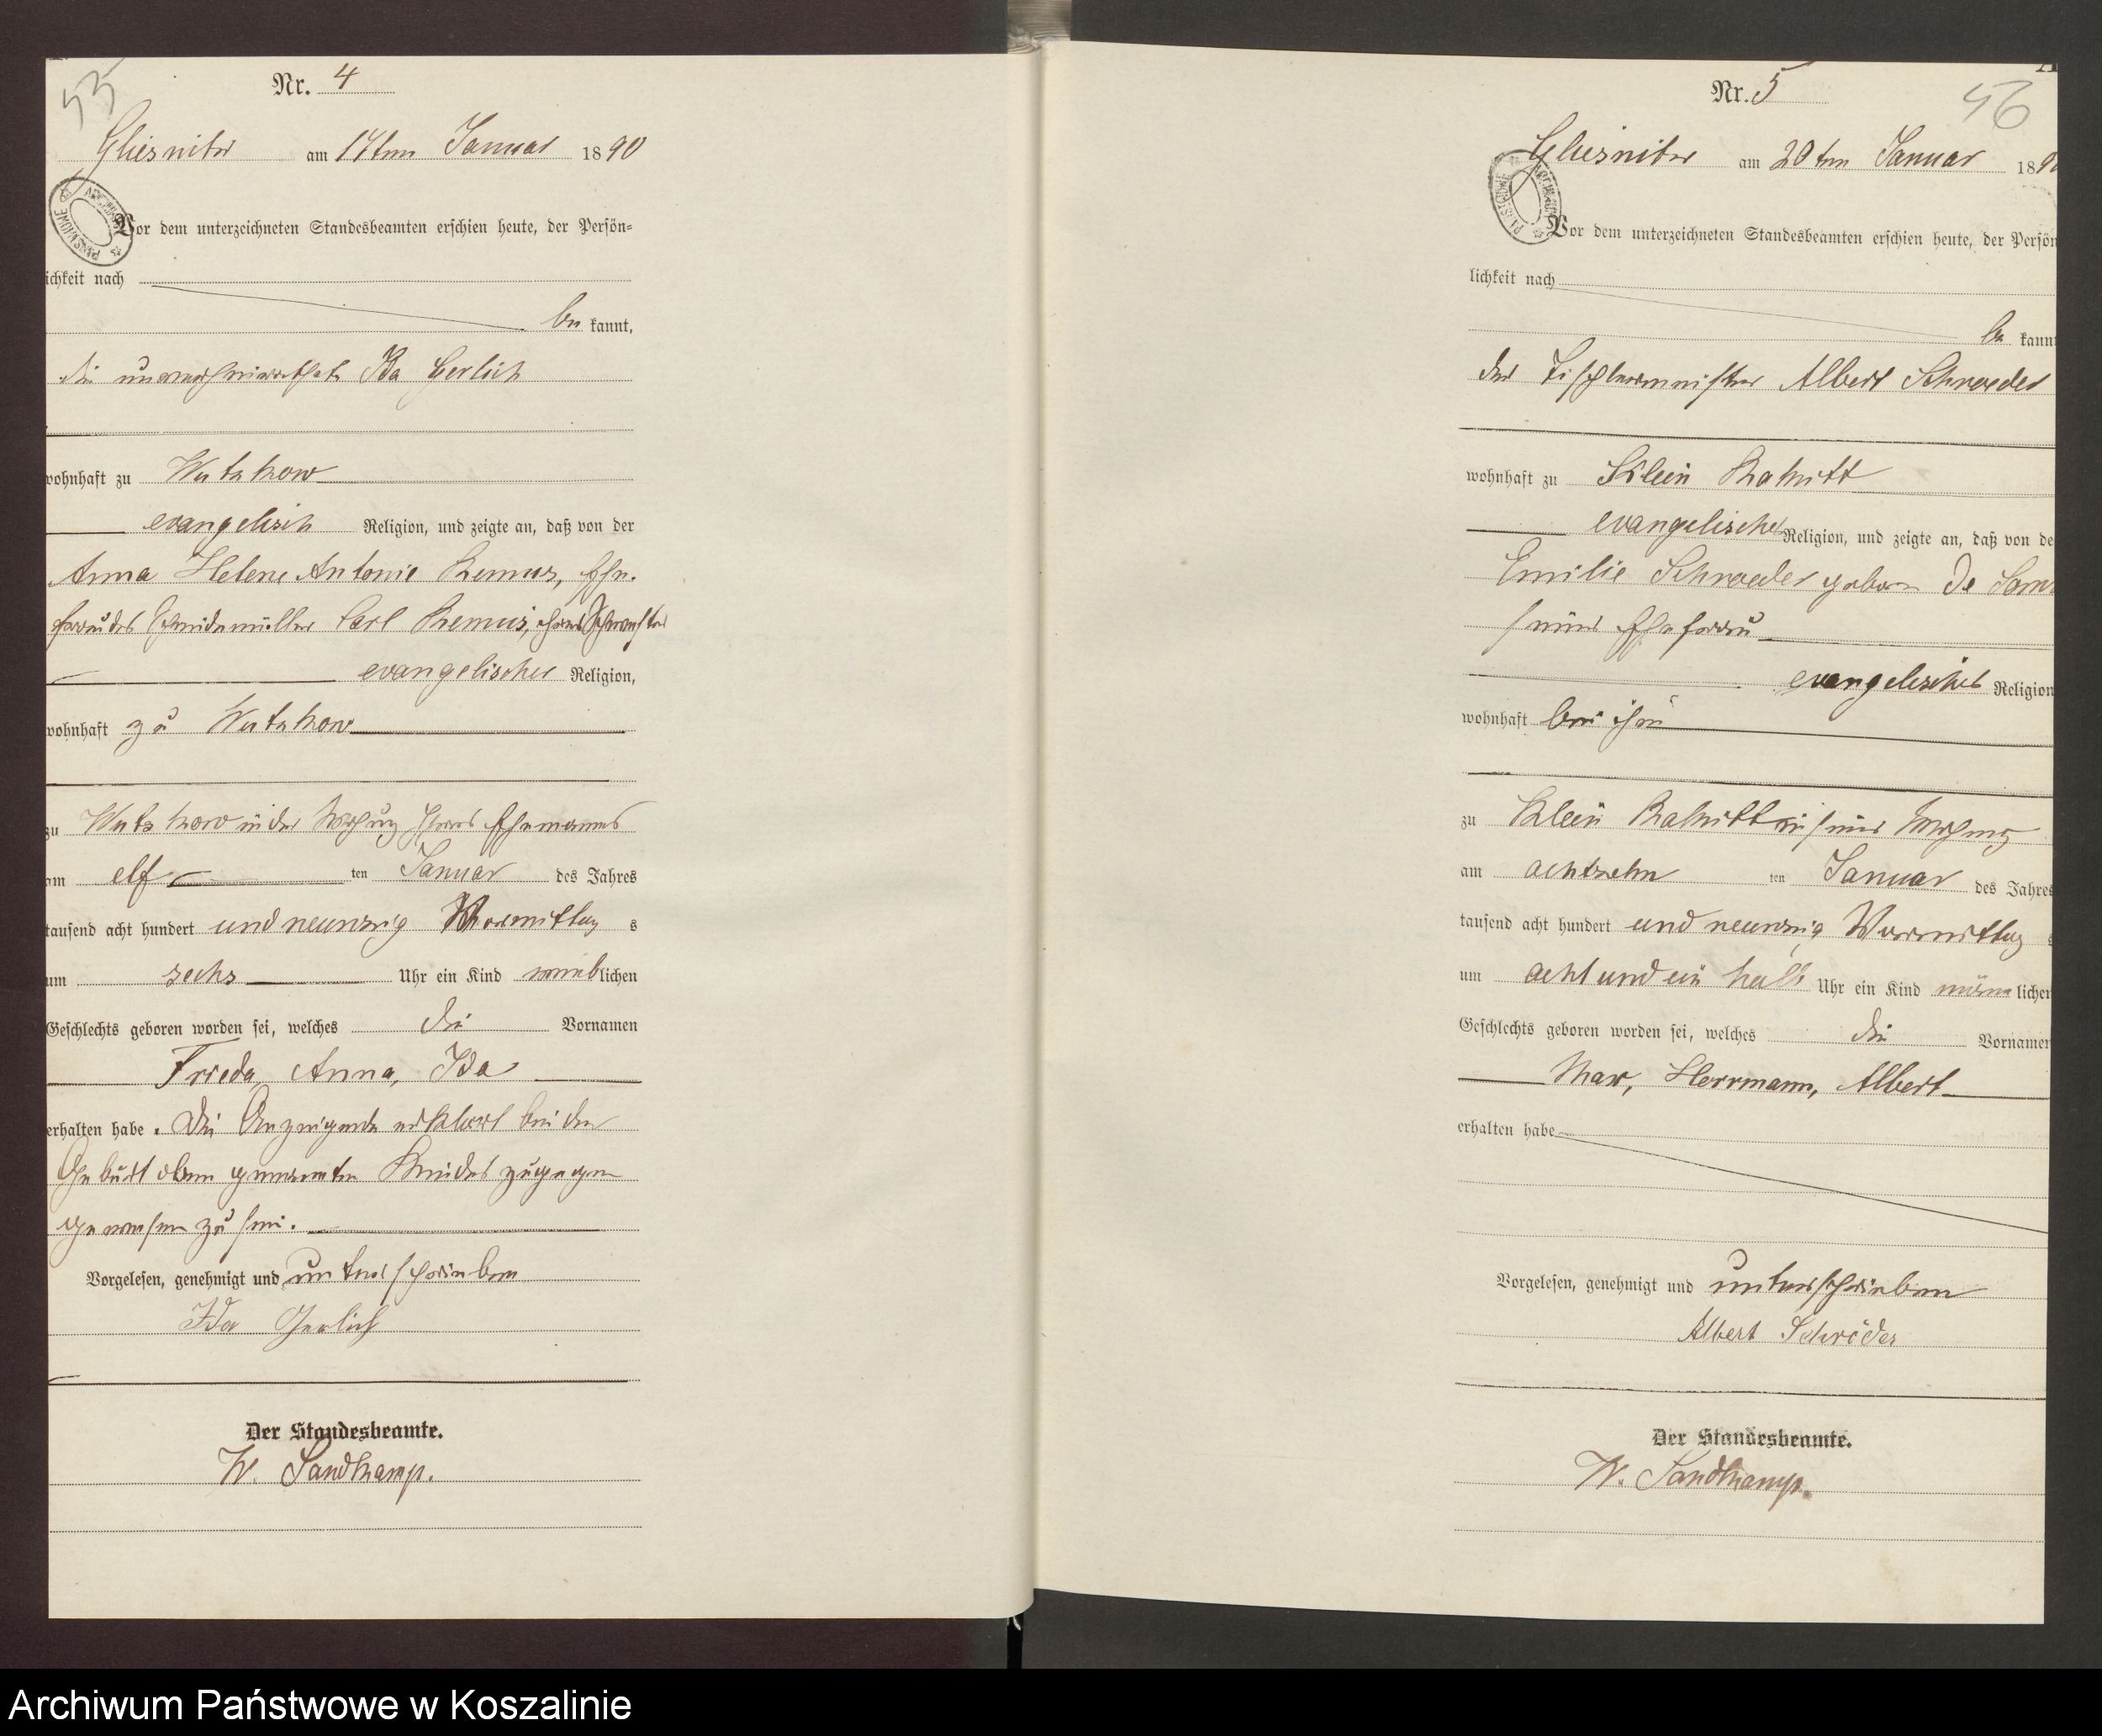 55
Nr. 4
Gliesnitz am 17ten Januar 1890
Vor dem unterzeichneten Standesbeamten erschien heute, der Persön-
lichkeit nach
be kannt,
die unverheirathete Ida Gerlich
wohnhaft zu Wutzkow
evangelisch Religion, und zeigte an, daß von der
Anna Helene Antonie Remus, Ehe-
frau des Schneidemüller Carl Remus, ihrer Schwester
evangelischer Religion,
wohnhaft zu Wutzkow
zu Wutzkow in der Wohnung ihres Ehemannes
am elf ten Januar des Jahres
tausend acht hundert und neunzig Vormittag s
um sechs Uhr ein Kind weiblichen
Geschlechts geboren worden sei, welches die Vornamen
Frieda, Anna, Ida
erhalten habe. Die Anzeigende erklärt bei der
Geburt oben genannten Kindes zugegen
gewesen zu sein.
Vorgelesen, genehmigt und unterschrieben
Ida Gerlich
Der Standesbeamte.
W. Sandkamp.
56
Nr. 5
Gliesnitz am 20ten Januar 1890
Vor dem unterzeichneten Standesbeamten erschien heute, der Persön
lichkeit nach
be kannt
der Tischlermeister Albert Schroeder
wohnhaft zu Klein Rakitt
evangelischer Religion, und zeigte an, daß von de
Emilie Schroeder geboren
seiner Ehefrau
evangelischer Religion
wohnhaft bei ihm
zu Klein Rakitt in seiner Wohnung
am achtzehn ten Januar des Jahres
tausend acht hundert und neunzig Vormittag s
um acht und ein halb Uhr ein Kind männ lichen
Geschlechts geboren worden sei, welches die Vornamen
Max, Herrmann, Albert
erhalten habe
Vorgelesen, genehmigt und unterschrieben
Albert Schröder
Der Standesbeamte.
W. Sandkamp.
Archiwum Państwowe w Koszalinie